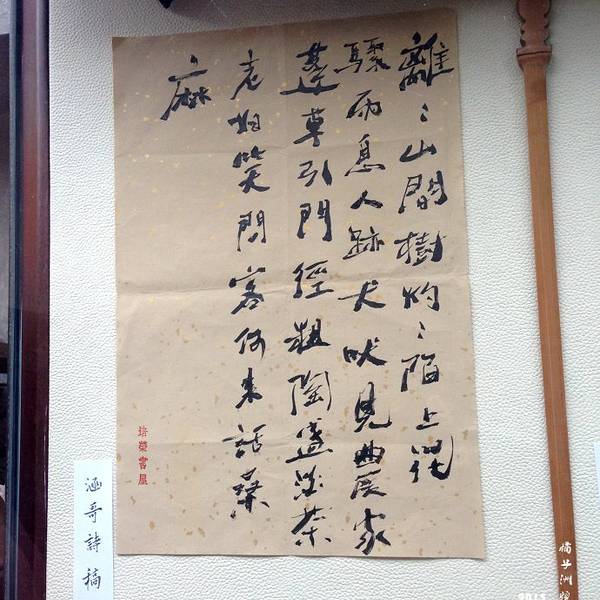 離〻山間樹灼〻陌上花
驟雨息人跡犬吠見農家
蓬草引門徑粗陶盛淡茶
老妪笑問客何來話桑
麻
培榮書屋
涵哥詩稿
橘子洲